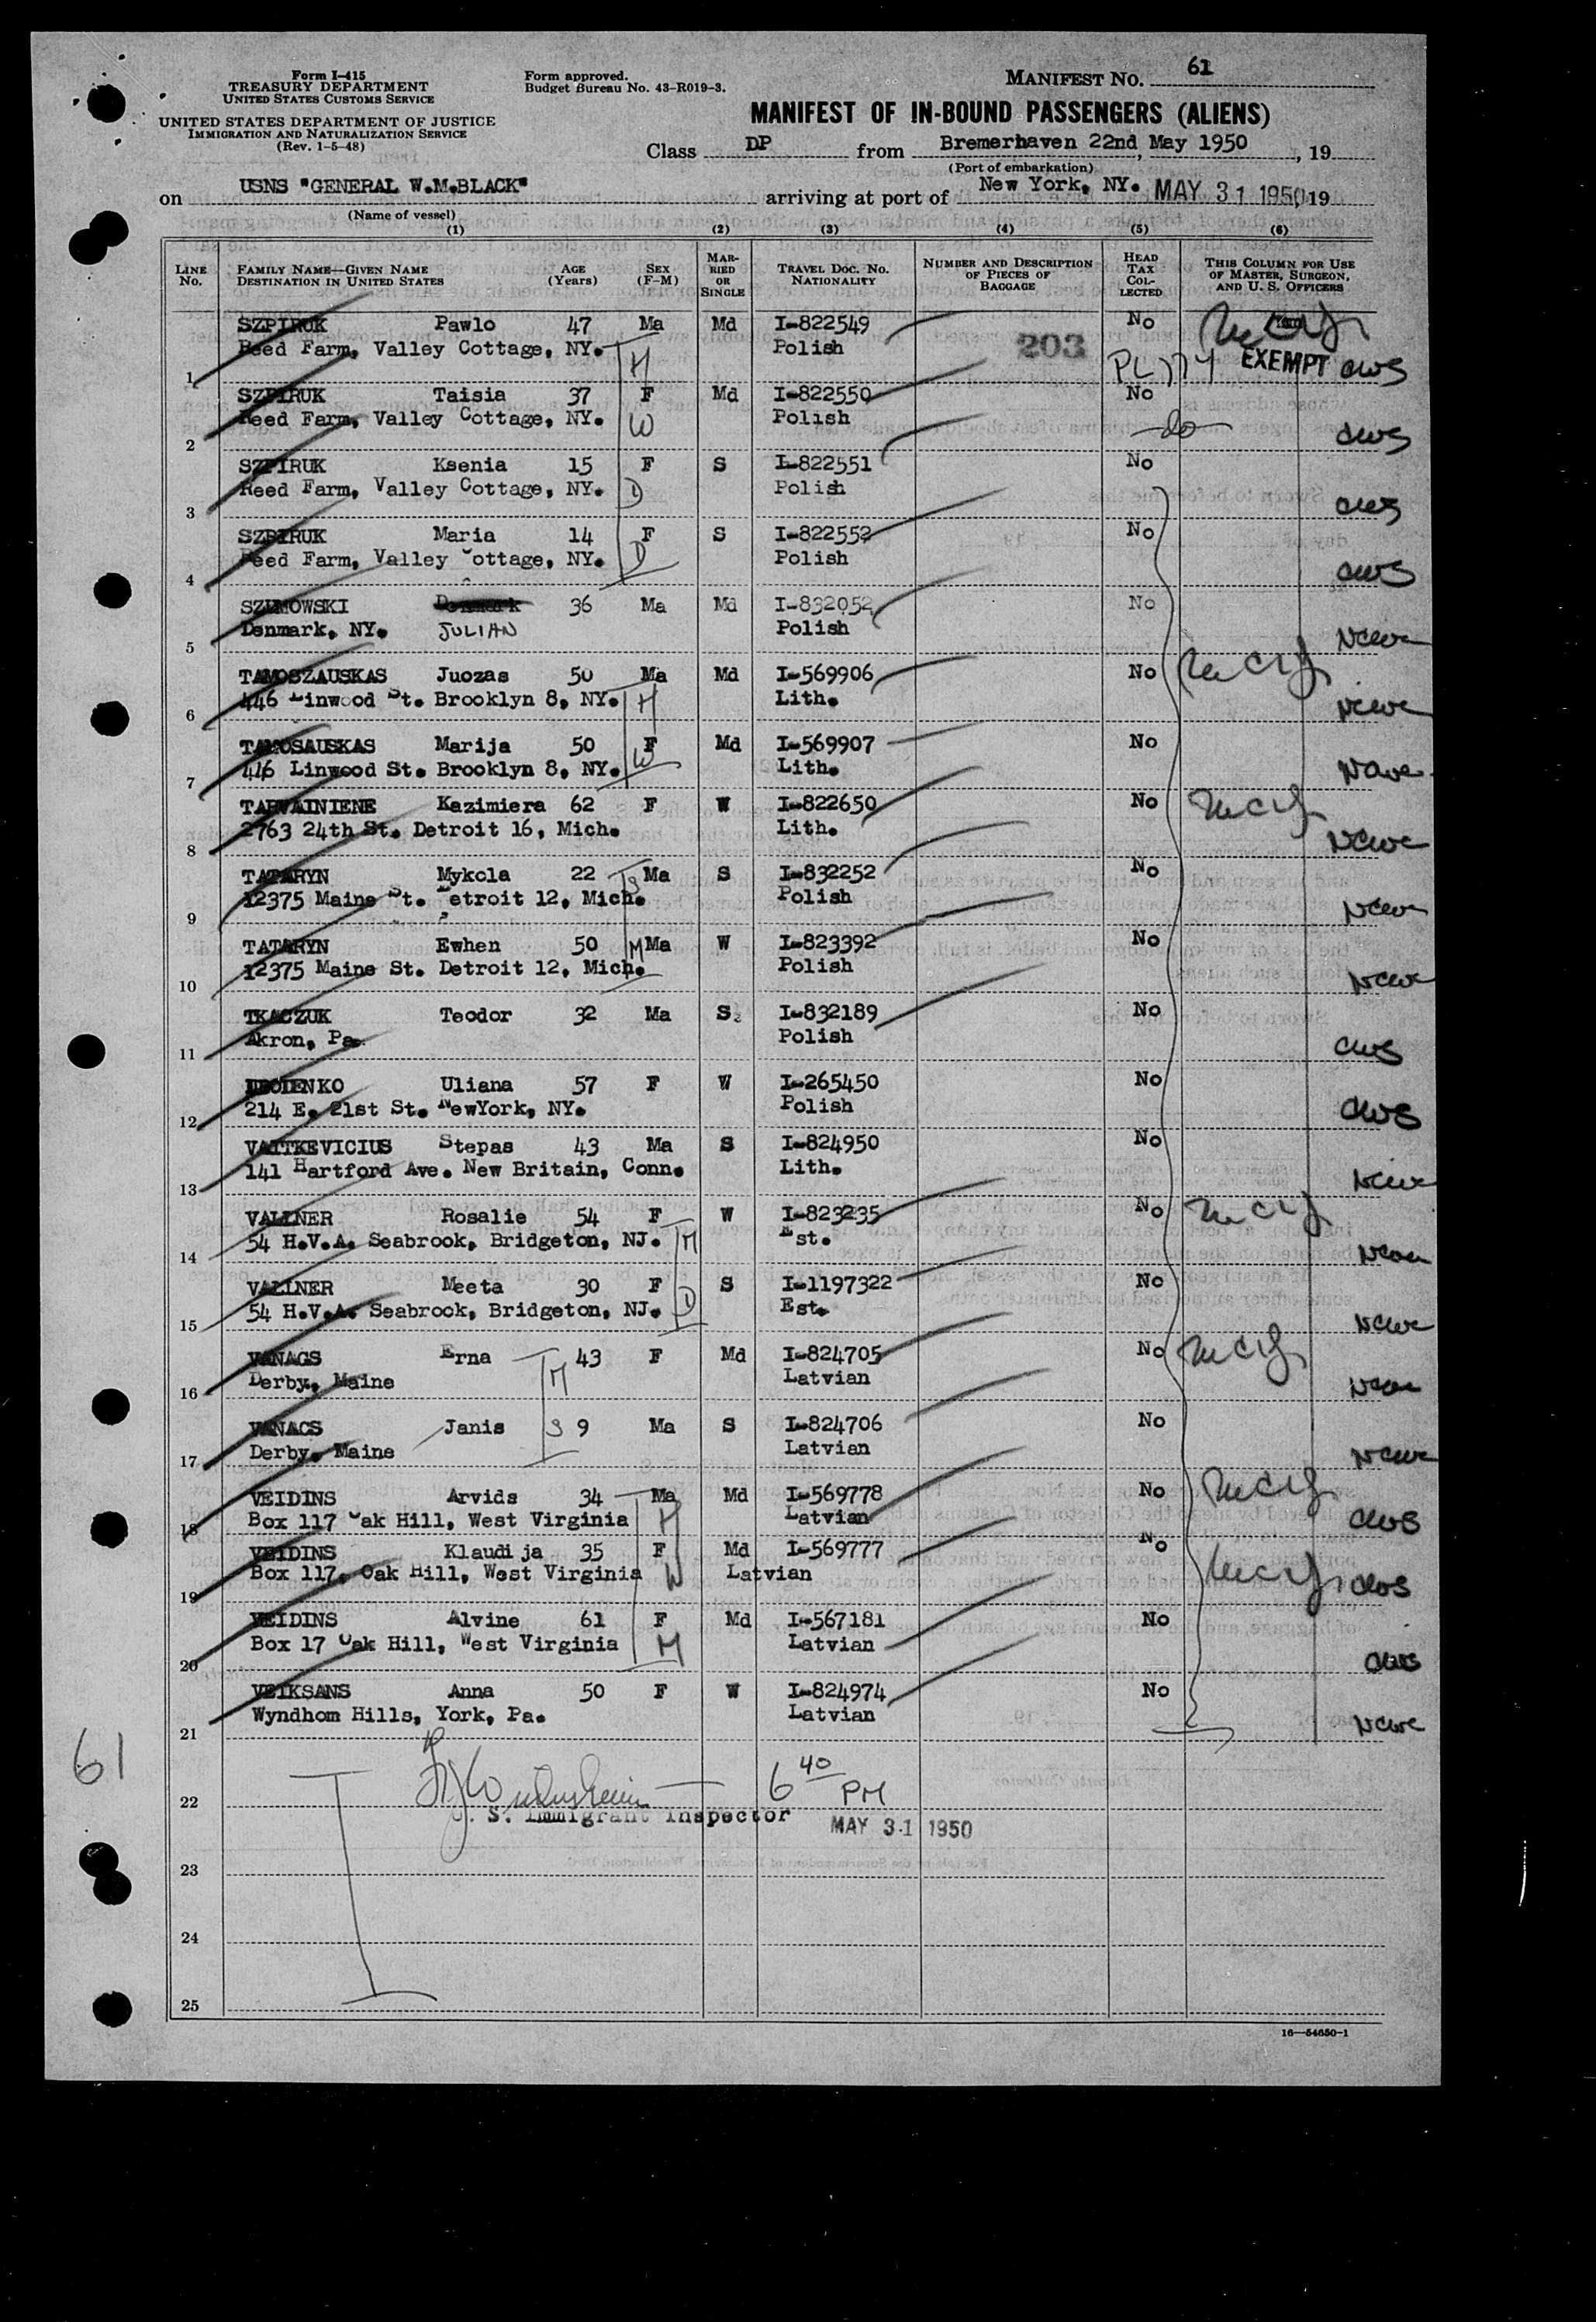 Form I-415
TREASURY DEPARTMENT
UNITED STATES CUSTOMS SERVICE
UNITED STATES DEPARTMENT OF JUSTICE
IMMIGRATION AND NATURALIZATION SERVICE
(Rev. 1-5-48)
Form approved.
Budget Bureau No. 43-R019-3.
MANIFEST NO. 61
MANIFEST OF IN-BOUND PASSENGERS (ALIENS)
Class DP from Bremerhaven 22nd, May 1950, 19
(Port of embarkation)
on USNS "GENERAL W.M.BLACK" arriving at port of New York, NY. MAY 31 1950, 19
(Name of vessel)
(1) (2) (3) (4) (5) (6)
LINE NO. FAMILY NAME—GIVEN NAME DESTINATION IN UNITED STATES AGE (YEARS) SEX (F-M) MARRIED OR SINGLE TRAVEL DOC. NO. NATIONALITY NUMBER AND DESCRIPTION OF PIECES OF BAGGAGE HEAD TAX COLLECTED THIS COLUMN FOR USE OF MASTER, SURGEON, AND U. S. OFFICERS
SZPIRUK Pawlo 47 Ma Md I-822549 No
1 Reed Farm, Valley Cottage, NY. H Polish 203 PL 774 EXEMPT CWS
SZPIRUK Taisia 37 F Md I-822550 No
2 Reed Farm, Valley Cottage, NY. W Polish do CWS
SZPIRUK Ksenia 15 F S I-822551 No
3 Reed Farm, Valley Cottage, NY. D Polish CWS
SZPIRUK Maria 14 F S I-822552 No
4 Reed Farm, Valley Cottage, NY. D Polish CWS
SZUMOWSKI Denmark 36 Ma Md I-832052 No
5 Denmark, NY. JULIAN Polish NCWC
TAMOSZAUSKAS Juozas 50 Ma Md I-569906 No
6 446 Linwood St. Brooklyn 8, NY. H Lith. NCWC
TAMOSAUSKAS Marija 50 F Md I-569907 No
7 446 Linwood St. Brooklyn 8, NY. W Lith. NCWC
TARVAINIENE Kazimiera 62 F W I-822650 No
8 2763 24th St. Detroit 16, Mich. Lith. NCWC
TATARYN Mykola 22 S Ma S I-832252 No
9 12375 Maine St. Detroit 12, Mich. Polish NCWC
TATARYN Ewhen 50 M Ma W I-823392 No
10 12375 Maine St. Detroit 12, Mich. Polish NCWC
TKACZUK Teodor 32 Ma S I-832189 No
11 Akron, Pa. Polish CWS
Uliana 57 F W I-265450 No
12 214 E. 21st St. NewYork, NY. Polish CWS
VAITKEVICIUS Stepas 43 Ma S I-824950 No
13 141 Hartford Ave. New Britain, Conn. Lith. NCWC
VALLNER Rosalie 54 F W I-823235 No
14 54 H.V.A. Seabrook, Bridgeton, NJ. M Est. NCWC
VALLNER Meeta 30 F S I-1197322 No
15 54 H.V.A. Seabrook, Bridgeton, NJ. D Est. NCWC
VANAGS Erna 43 F Md I-824705 No
16 Derby, Maine M Latvian NCWC
VANAGS Janis S 9 Ma S I-824706 No
17 Derby, Maine Latvian NCWC
VEIDINS Arvids 34 Ma Md I-569778 No
18 Box 117 Oak Hill, West Virginia H Latvian CWS
VEIDINS Klaudija 35 F Md I-569777 No
19 Box 117, Oak Hill, West Virginia W Latvian CWS
VEIDINS Alvine 61 F Md I-567181 No
20 Box 17 Oak Hill, West Virginia M Latvian CWS
VEIKSANS Anna 50 F W I-824974 No
21 Wyndhom Hills, York, Pa. Latvian NCWC
61
22 6 40 PM
U. S. Immigrant Inspector MAY 31 1950
23
24
25
16—54650-1